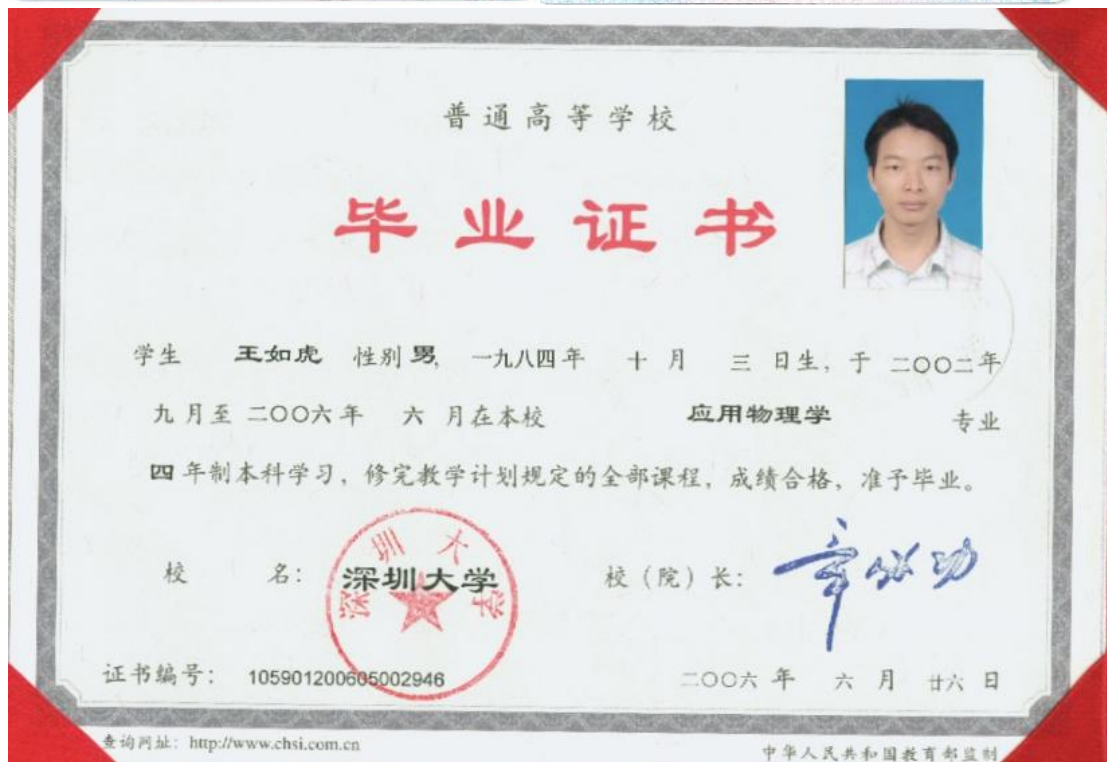 普通高等学校
毕业证书
学生 王如虎 性别 男, 一九八四年 十月 三日生, 于 二〇〇二年
九月至 二〇〇六年 六月在本校 应用物理学 专业
四年制本科学习, 修完教学计划规定的全部课程, 成绩合格, 准予毕业。
校 名: 深圳大学 校(院)长: 章必功
深圳大学
证书编号: 105901200605002946 二〇〇六年 六月 廿六日
查询网址: http://www.chsi.com.cn 中华人民共和国教育部监制